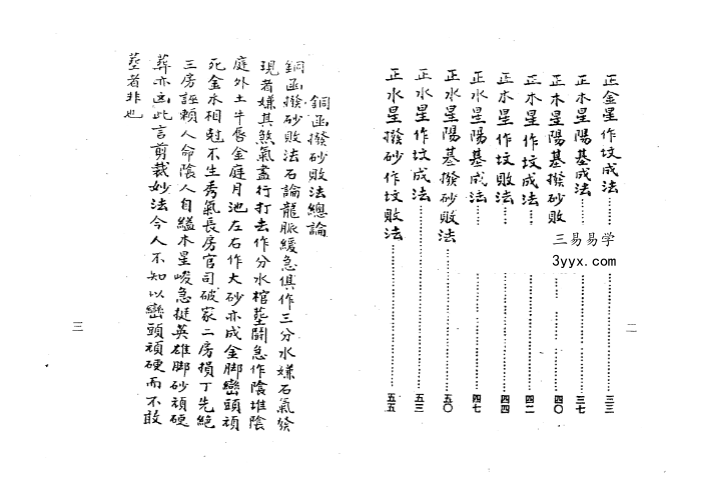 正金星作坟成法……三三
正木星陽基成法……三七
正木星陽基撥砂敗……四〇
正木星作坟成法……四二
正木星作坟敗法……四四
正水星陽基成法……四七
正水星陽基撥砂敗法……五〇
正水星作坟成法……五三
正水星撥砂作坟敗法……五五
二
三易易学
3yyx.com
銅函撥砂敗法總論
銅函撥砂敗法石論龍脈緩急俱作三分水嫌石氣發
現者嫌其煞氣盡行打去作分水棺塟鬪急作陰堆陰
庭外土牛唇金庭月池左右作大砂亦成金脚巒頭頑
死金木相尅不生秀氣長房官司破家二房損丁先絕
三房誣賴人命陰人自縊木星峻急挺英雄脚砂頑硬
葬亦凶此言剪裁妙法今人不知以巒頭頑硬而不敢
塟者非也
三